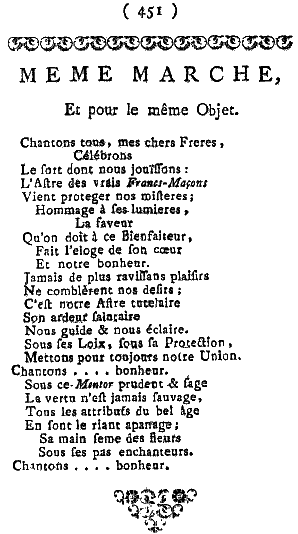 ( 451 )
MEME MARCHE,
Et pour le même Objet.
Chantons tous, mes chers Freres,
Célébrons
Le sort dont nous jouïssons :
L'Astre des vrais Francs-Maçons
Vient proteger nos misteres ;
Hommage à ses lumieres,
La faveur
Qu'on doit à ce Bienfaiteur,
Fait l'eloge de son cœur
Et notre bonheur.
Jamais de plus ravissans plaisirs
Ne comblèrent nos desirs ;
C'est notre Astre tutelaire
Son ardent salutaire
Nous guide & nous éclaire.
Sous ses Loix, sous sa Protection,
Mettons pour toujours notre Union.
Chantons . . . . bonheur.
Sous ce Mentor prudent & sage
La vertu n'est jamais sauvage,
Tous les attributs du bel âge
En font le riant apanage ;
Sa main seme des fleurs
Sous ses pas enchanteurs.
Chantons . . . . bonheur.